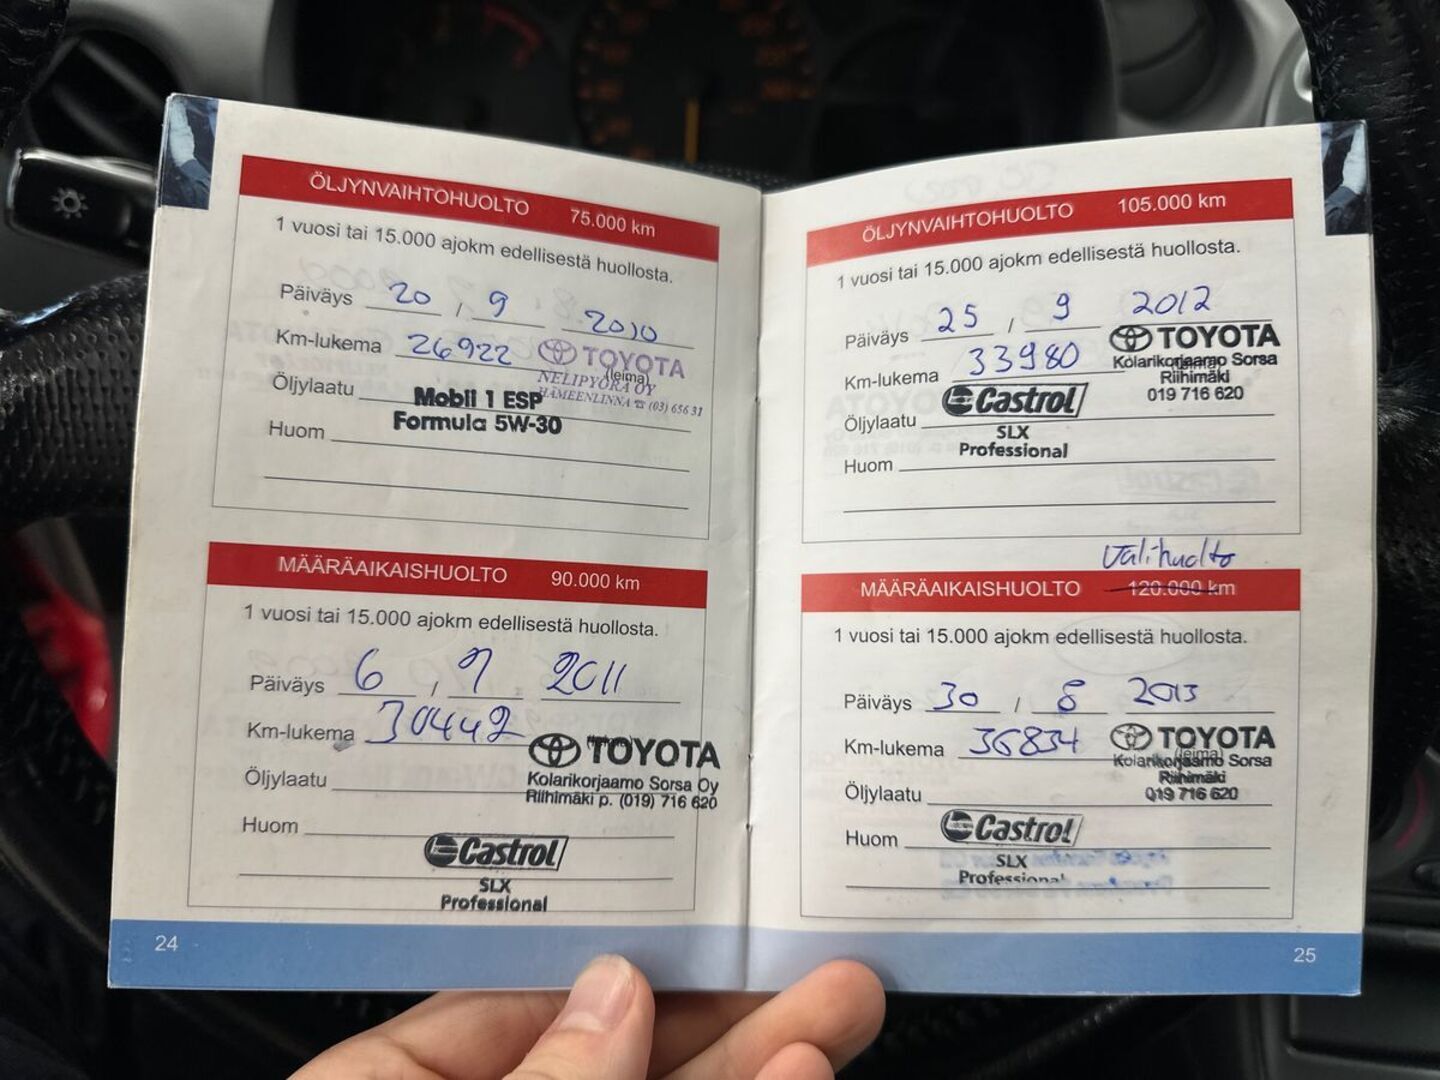 ÖLJYNVAIHTOHUOLTO 75.000 km
1 vuosi tai 15.000 ajokm edellisestä huollosta.
Päiväys 20 , 9 2010
Km-lukema 26922 TOYOTA
(leima)
NELIPYÖRÄ OY
HÄMEENLINNA ☎ (03) 656 31
Öljylaatu Mobil 1 ESP
Formula 5W-30
Huom
MÄÄRÄAIKAISHUOLTO 90.000 km
1 vuosi tai 15.000 ajokm edellisestä huollosta.
Päiväys 6 , 9 2011
Km-lukema 30442
TOYOTA
Kolarikorjaamo Sorsa Oy
Riihimäki p. (019) 716 620
Öljylaatu
Huom
Castrol
SLX
Professional
24
ÖLJYNVAIHTOHUOLTO 105.000 km
1 vuosi tai 15.000 ajokm edellisestä huollosta.
Päiväys 25 / 9 2012
TOYOTA
Km-lukema 33980 Kolarikorjaamo Sorsa
Riihimäki
019 716 620
Öljylaatu Castrol
SLX
Professional
Huom
Välihuolto
MÄÄRÄAIKAISHUOLTO 120.000 km
1 vuosi tai 15.000 ajokm edellisestä huollosta.
Päiväys 30 / 8 2013
Km-lukema 36834 TOYOTA
(leima)
Kolarikorjaamo Sorsa
Riihimäki
019 716 620
Öljylaatu
Huom Castrol
SLX
Professional
25